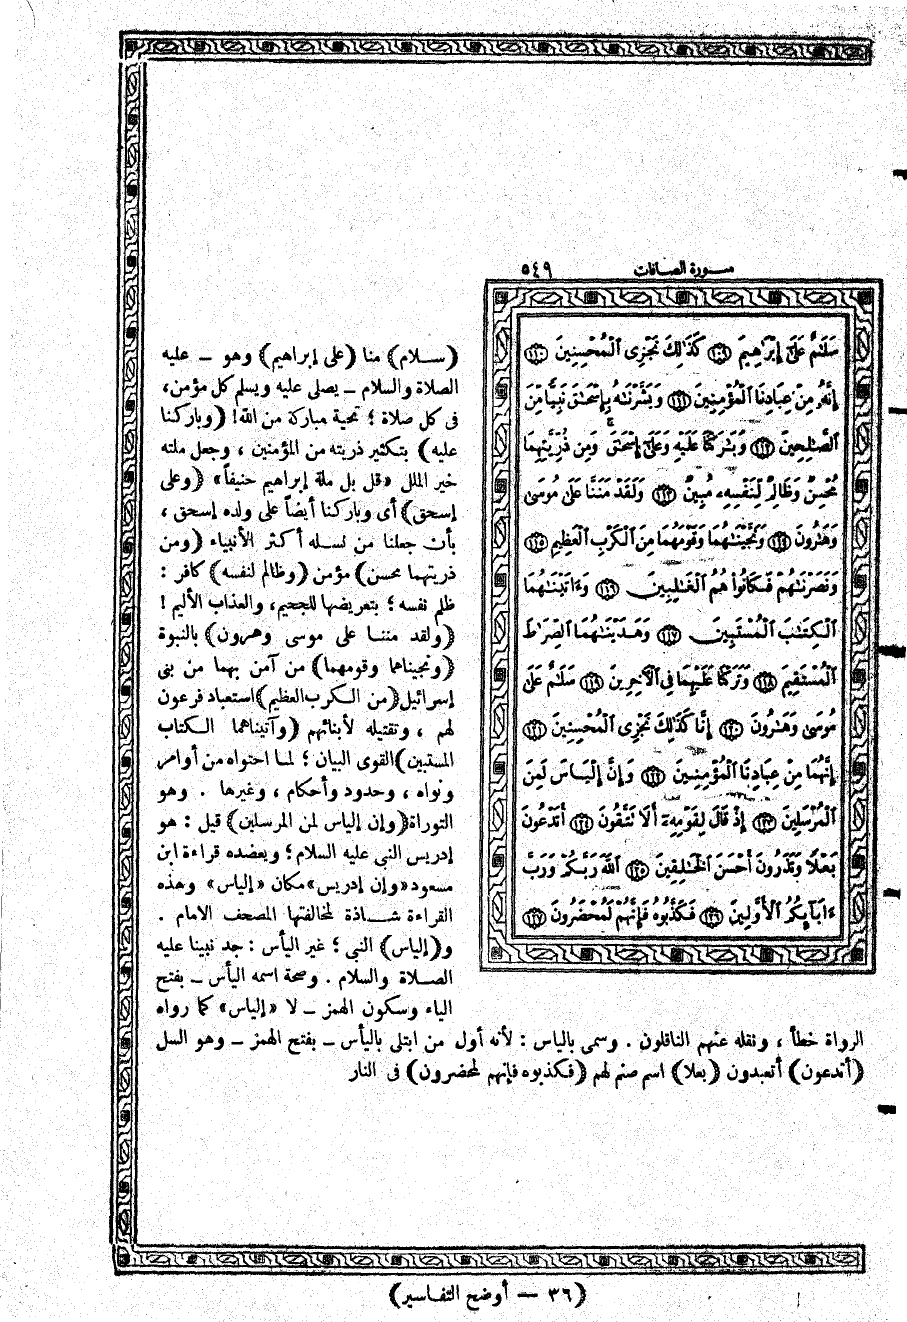 سورة الصافات ٥٤٩
سَلَٰمٌ عَلَىٰٓ إِبْرَٰهِيمَ ﴿١٠٩﴾ كَذَٰلِكَ نَجْزِى ٱلْمُحْسِنِينَ ﴿١١٠﴾
إِنَّهُۥ مِنْ عِبَادِنَا ٱلْمُؤْمِنِينَ ﴿١١١﴾ وَبَشَّرْنَٰهُ بِإِسْحَٰقَ نَبِيًّا مِّنَ
ٱلصَّٰلِحِينَ ﴿١١٢﴾ وَبَٰرَكْنَا عَلَيْهِ وَعَلَىٰٓ إِسْحَٰقَ وَمِن ذُرِّيَّتِهِمَا
مُحْسِنٌ وَظَالِمٌ لِّنَفْسِهِۦ مُبِينٌ ﴿١١٣﴾ وَلَقَدْ مَنَنَّا عَلَىٰ مُوسَىٰ
وَهَٰرُونَ ﴿١١٤﴾ وَنَجَّيْنَٰهُمَا وَقَوْمَهُمَا مِنَ ٱلْكَرْبِ ٱلْعَظِيمِ ﴿١١٥﴾
وَنَصَرْنَٰهُمْ فَكَانُوا۟ هُمُ ٱلْغَٰلِبِينَ ﴿١١٦﴾ وَءَاتَيْنَٰهُمَا
ٱلْكِتَٰبَ ٱلْمُسْتَبِينَ ﴿١١٧﴾ وَهَدَيْنَٰهُمَا ٱلصِّرَٰطَ
ٱلْمُسْتَقِيمَ ﴿١١٨﴾ وَتَرَكْنَا عَلَيْهِمَا فِى ٱلْءَاخِرِينَ ﴿١١٩﴾ سَلَٰمٌ عَلَىٰ
مُوسَىٰ وَهَٰرُونَ ﴿١٢٠﴾ إِنَّا كَذَٰلِكَ نَجْزِى ٱلْمُحْسِنِينَ ﴿١٢١﴾
إِنَّهُمَا مِنْ عِبَادِنَا ٱلْمُؤْمِنِينَ ﴿١٢٢﴾ وَإِنَّ إِلْيَاسَ لَمِنَ
ٱلْمُرْسَلِينَ ﴿١٢٣﴾ إِذْ قَالَ لِقَوْمِهِۦٓ أَلَا تَتَّقُونَ ﴿١٢٤﴾ أَتَدْعُونَ
بَعْلًا وَتَذَرُونَ أَحْسَنَ ٱلْخَٰلِقِينَ ﴿١٢٥﴾ ٱللَّهَ رَبَّكُمْ وَرَبَّ
ءَابَآئِكُمُ ٱلْأَوَّلِينَ ﴿١٢٦﴾ فَكَذَّبُوهُ فَإِنَّهُمْ لَمُحْضَرُونَ ﴿١٢٧﴾
(سلام) منا (على إبراهيم) وهو – عليه
الصلاة والسلام – يصلى عليه ويسلم كل مؤمن،
فى كل صلاة ؛ تحية مباركة من الله! (وباركنا
عليه) بتكثير ذريته من المؤمنين ، وجعل ملته
خير الملل «قل بل ملة إبراهيم حنيفاً» (وعلى
إسحق) أى وباركنا أيضاً على ولده إسحق ،
بأن جعلنا من نسله أكثر الأنبياء (ومن
ذريتهما محسن) مؤمن (وظالم لنفسه) كافر :
ظلم نفسه ؛ بتعريضها للجحيم، والعذاب الأليم !
(ولقد مننا على موسى وهرون) بالنبوة
(ونجيناهما وقومهما) من آمن بهما من بنى
إسرائيل (من الكرب العظيم) استعباد فرعون
لهم ، وتقتيله لأبنائهم (وآتيناهما الكتاب
المستبين) القوى البيان ؛ لما احتواه من أوامر
ونواه ، وحدود وأحكام ، وغيرها . وهو
التوراة (وإن إلياس لمن المرسلين) قيل : هو
إدريس النبى عليه السلام ؛ ويعضده قراءة ابن
مسعود «وإن إدريس» مكان «إلياس» وهذه
القراءة شاذة لمخالفتها المصحف الامام .
و(إلياس) النبى ؛ غير اليأس : جد نبينا عليه
الصلاة والسلام . وصحة اسمه اليأس – بفتح
الياء وسكون الهمز – لا «إلياس» كما رواه
الرواة خطأ ، ونقله عنهم الناقلون . وسمى باليأس : لأنه أول من ابتلى باليأس – بفتح الهمز – وهو السل
(أتدعون) أتعبدون (بعلا) اسم صنم لهم (فكذبوه فإنهم لمحضرون) فى النار
(٣٦ – أوضح التفاسير)